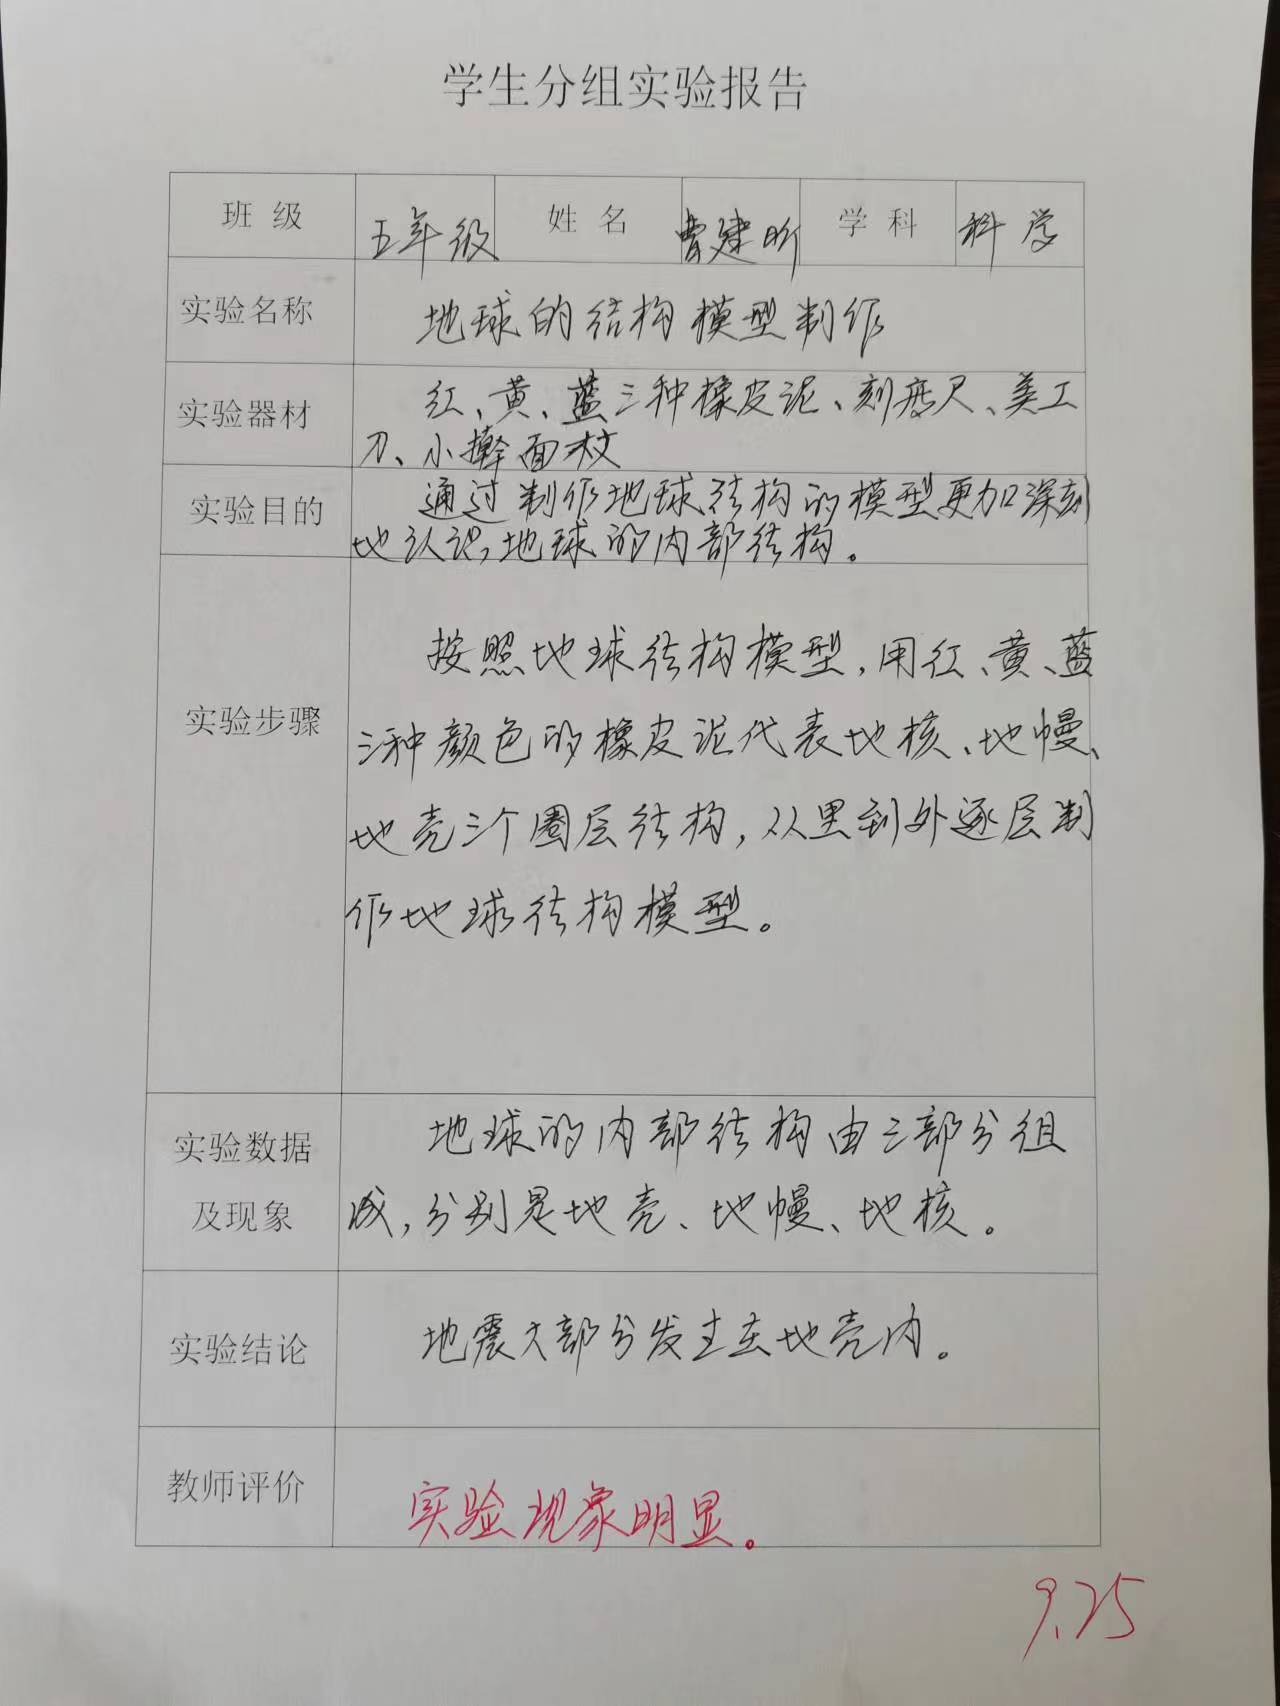 学生分组实验报告
班 级 五年级 姓 名 曹建昕 学 科 科学
实验名称 地球的结构模型制作
实验器材 红、黄、蓝三种橡皮泥、刻度尺、美工
刀、小擀面杖
实验目的 通过制作地球结构的模型更加深刻
地认识,地球的内部结构。
实验步骤
按照地球结构模型,用红、黄、蓝
三种颜色的橡皮泥代表地核、地幔、
地壳三个圈层结构,从里到外逐层制
作地球结构模型。
实验数据
及现象
地球的内部结构由三部分组
成,分别是地壳、地幔、地核。
实验结论 地震大部分发生在地壳内。
教师评价 实验现象明显。
9.25